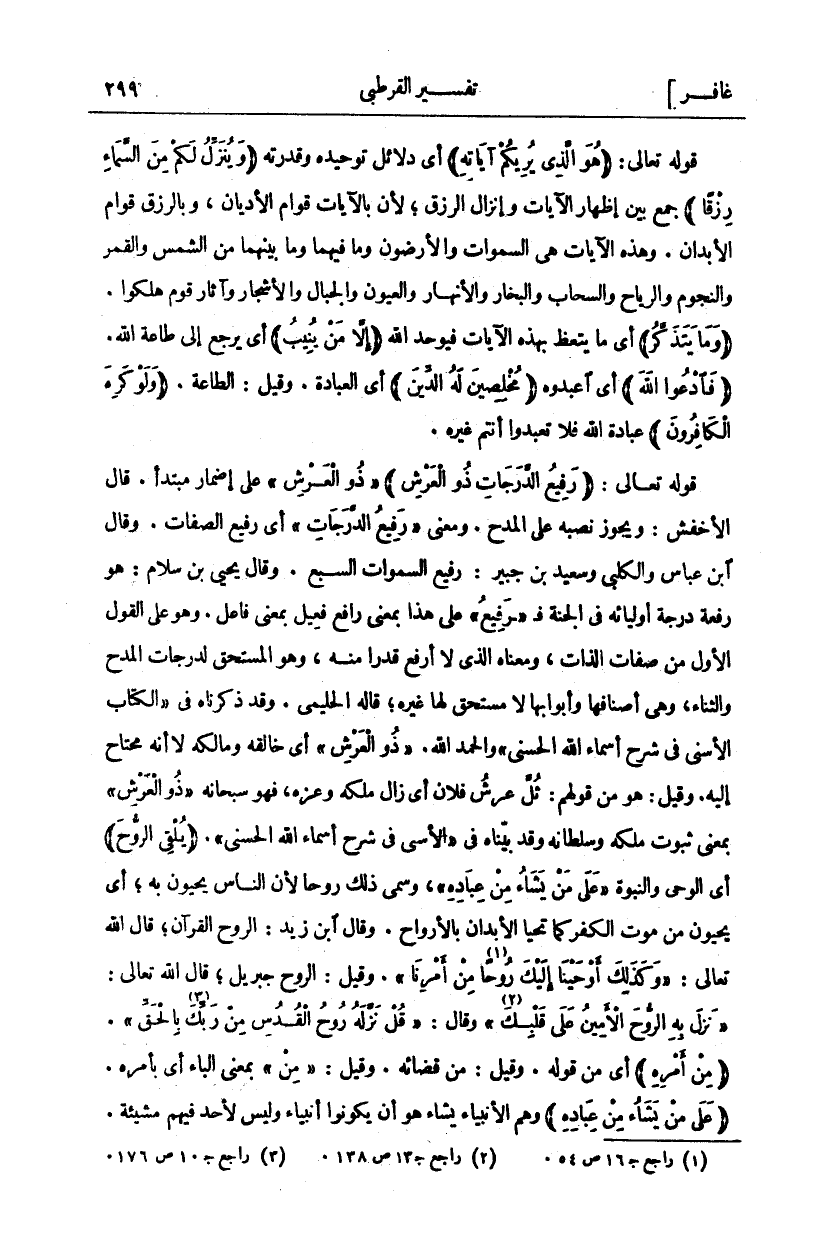 غافر]
تفسير القرطبى
٢٩٩
قوله تعالى: ﴿هُوَ الَّذِى يُرِيكُمْ آيَاتِهِ﴾ أى دلائل توحيده وقدرته ﴿وَيُنَزِّلُ لَكُمْ مِنَ السَّمَاءِ
رِزْقًا﴾ جمع بين إظهار الآيات وإنزال الرزق؛ لأن بالآيات قوام الأديان، وبالرزق قوام
الأبدان. وهذه الآيات هى السموات والأرضون وما فيهما وما بينهما من الشمس والقمر
والنجوم والرياح والسحاب والبخار والأنهار والعيون والجبال والأشجار وآثار قوم هلكوا.
﴿وَمَا يَتَذَكَّرُ﴾ أى ما يتعظ بهذه الآيات فيوحد الله ﴿إِلَّا مَنْ يُنِيبُ﴾ أى يرجع إلى طاعة الله.
﴿فَٱدْعُوا اللّٰهَ﴾ أى ٱعبدوه ﴿مُخْلِصِينَ لَهُ الدِّينَ﴾ أى العبادة. وقيل: الطاعة. ﴿وَلَوْ كَرِهَ
الْكَافِرُونَ﴾ عبادة الله فلا تعبدوا أنتم غيره.
قوله تعـالى: ﴿رَفِيعُ الدَّرَجَاتِ ذُو الْعَرْشِ﴾ «ذُو الْعَـرْشِ» على إضمار مبتدأ. قال
الأخفش: ويجوز نصبه على المدح. ومعنى «رَفِيعُ الدَّرَجَاتِ» أى رفيع الصفات. وقال
ٱبن عباس والكلبى وسعيد بن جبير: رفيع السموات السبع. وقال يحيى بن سلام: هو
رفعة درجة أوليائه فى الجنة فـ «ـرَفِيعُ» على هذا بمعنى رافع فعيل بمعنى فاعل. وهو على القول
الأول من صفات الذات، ومعناه الذى لا أرفع قدرا منـه، وهو المستحق لدرجات المدح
والثناء، وهى أصنافها وأبوابها لا مستحق لها غيره؛ قاله الحليمى. وقد ذكرناه فى «الكتاب
الأسنى فى شرح أسماء الله الحسنى» والحمد الله. «ذُو الْعَرْشِ» أى خالقه ومالكه لا أنه محتاج
إليه. وقيل: هو من قولهم: ثُلَّ عرشُ فلان أى زال ملكه وعزه، فهو سبحانه «ذُو الْعَرْشِ»
بمعنى ثبوت ملكه وسلطانه وقد بيّناه فى «الأسى فى شرح أسماء الله الحسنى». ﴿يُلْقِى الرُّوحَ﴾
أى الوحى والنبوة «عَلَى مَنْ يَشَاءُ مِنْ عِبَادِهِ»، وسمى ذلك روحا لأن النـاس يحيون به؛ أى
يحيون من موت الكفر كما تحيا الأبدان بالأرواح. وقال ٱبن زيد: الروح القرآن؛ قال الله
تعالى: «وَكَذَلِكَ أَوْحَيْنَا إِلَيْكَ رُوحًا مِنْ أَمْرِنَا»(١). وقيل: الروح جبريل؛ قال الله تعالى:
«نَزَلَ بِهِ الرُّوحُ الْأَمِينُ عَلَى قَلْبِـكَ»(٢) وقال: «قُلْ نَزَّلَهُ رُوحُ الْقُـدُسِ مِنْ رَبِّكَ بِالْحَقِّ»(٣).
﴿مِنْ أَمْرِهِ﴾ أى من قوله. وقيل: من قضائه. وقيل: «مِنْ» بمعنى الباء أى بأمره.
﴿عَلَى مَنْ يَشَاءُ مِنْ عِبَادِهِ﴾ وهم الأنبياء يشاء هو أن يكونوا أنبياء وليس لأحد فيهم مشيئة.
(١) راجع جـ١٦ ص ٥٤. (٢) راجع جـ١٣ ص ١٣٨. (٣) راجع جـ١٠ ص ١٧٦.